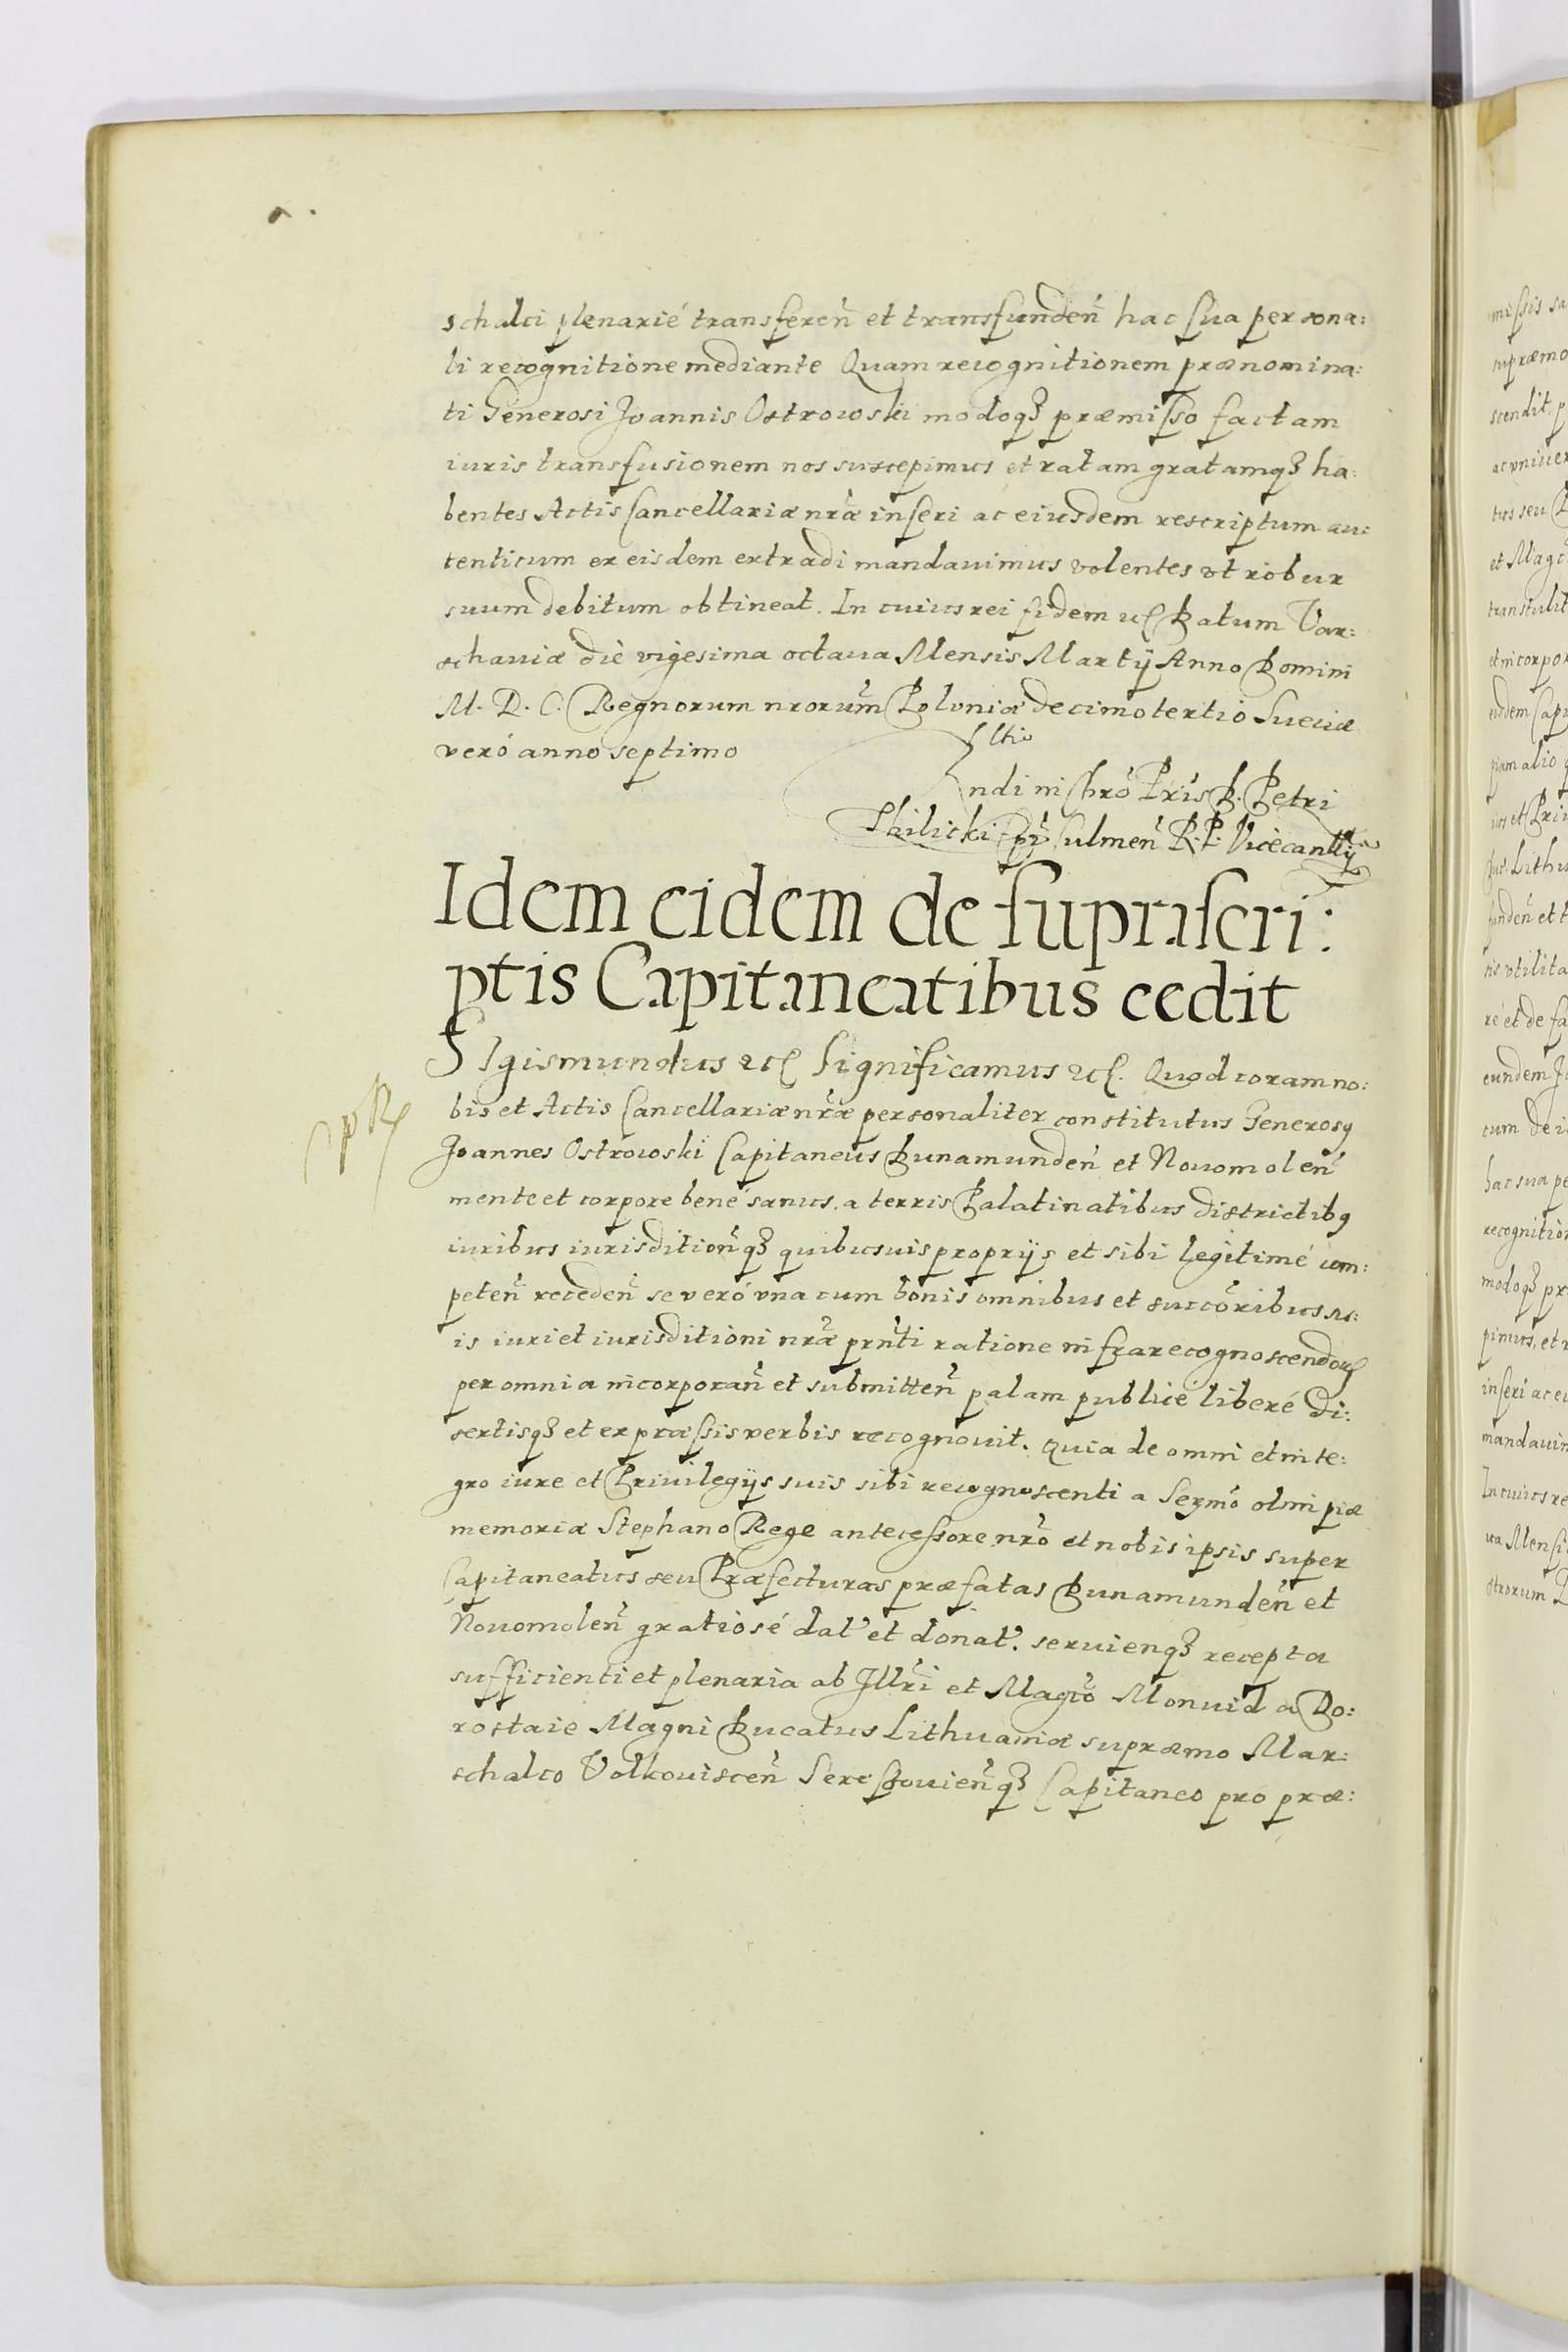 schalci plenarié transferen̄ et transfunden̄ hac sua persona:
li recognitione mediante Quam recognitionem prænomina:
ti Generosi Joannis Ostrowski modoqȝ præmisso factam
iuris transfusionem nos suscepimus et ratam gratamqȝ ha:
bentes Actis Cancellariæ nr̄æ inseri ac eiusdem rescriptum au:
tenticum ex eisdem extradi mandauimus volentes vt robur
suum debitum obtineat. In cuius rei fidem etc Datum Var:
schauiæ die vigesima octaua Mensis Martij Anno Domini
M. D. C. Regnorum nrorum̄ Poloniæ decimotertio Sueciæ
veró anno septimo
Rndi in Chrō Pris̄ D. Petri
Tÿlicki Ep̄i Culmen̄ R. P. Vicecanllrij
Idem eidem de suprascri:
ptis Capitaneatibus cedit
Sigismundus etc Significamus etc. Quod coram no:
bis et Actis Cancellariæ nr̄æ personaliter constitutus Generosꝰ
Joannes Ostrowski Capitaneus Dunamunden̄ et Nouomolen̄
mente et corpore bené sanus, a terris Palatinatibus districtibꝰ
iuribus iurisdition̄qȝ quibusuis proprijs et sibi legitimé com:
peten̄ receden̄ se veró vna cum bonis omnibus et succōribus su:
is iuri et iurisditioni nr̄æ prn̄ti ratione infrarecognoscendorꝝ
per omnia incorporan̄ et submitten̄ palam publicé liberé di:
sertisqȝ et expræssis verbis recognouit. Quia de omni et inte:
gro iure et Priuilegijs suis sibi recognoscenti a Serm̄o olim piæ
memoriæ Stephano Rege antecessore nrō et nobis ipsis super
Capitaneatus seu Præfecturas præfatas Dunamunden̄ et
Nouomolen̄ gratiosé dat̄ et donat̄. seruienqȝ recepta
sufficienti et plenaria ab Illr̄i et Magcō Monuid a Do:
rostaie Magni Ducatus Lithuaniæ supræmo Mar:
schalco Volkouiscen̄ Capitaneo pro præ: